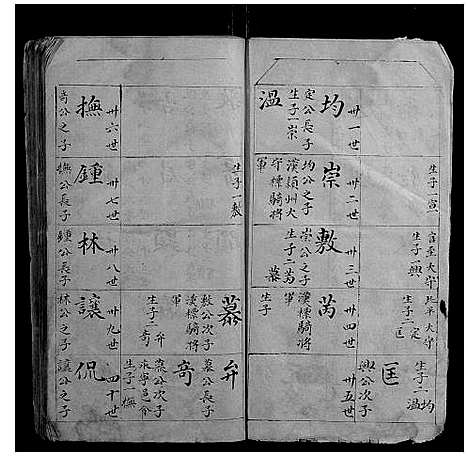 生子一
官至太守
生子一興
北平太守
生子二定
匡
生子二均
溫
卅一世
均
定公長子
生子一崇
溫
卅二世
崇
均公之子
漢潁州太
守標騎將
軍
生子一敷
卅三世
敷
崇公之子
生子二芮
慕
卅四世
芮
漢標騎將
軍
生子
慕
敷公次子
漢標騎將
軍
生子二弁
奇
卅五世
匡
興公次子
弁
慕公長子
奇
慕公次子
永寧邑令
生子一撫
卅六世
撫
奇公之子
卅七世
鍾
撫公長子
卅八世
林
鍾公長子
卅九世
讓
林公之子
四十世
侃
讓公之子